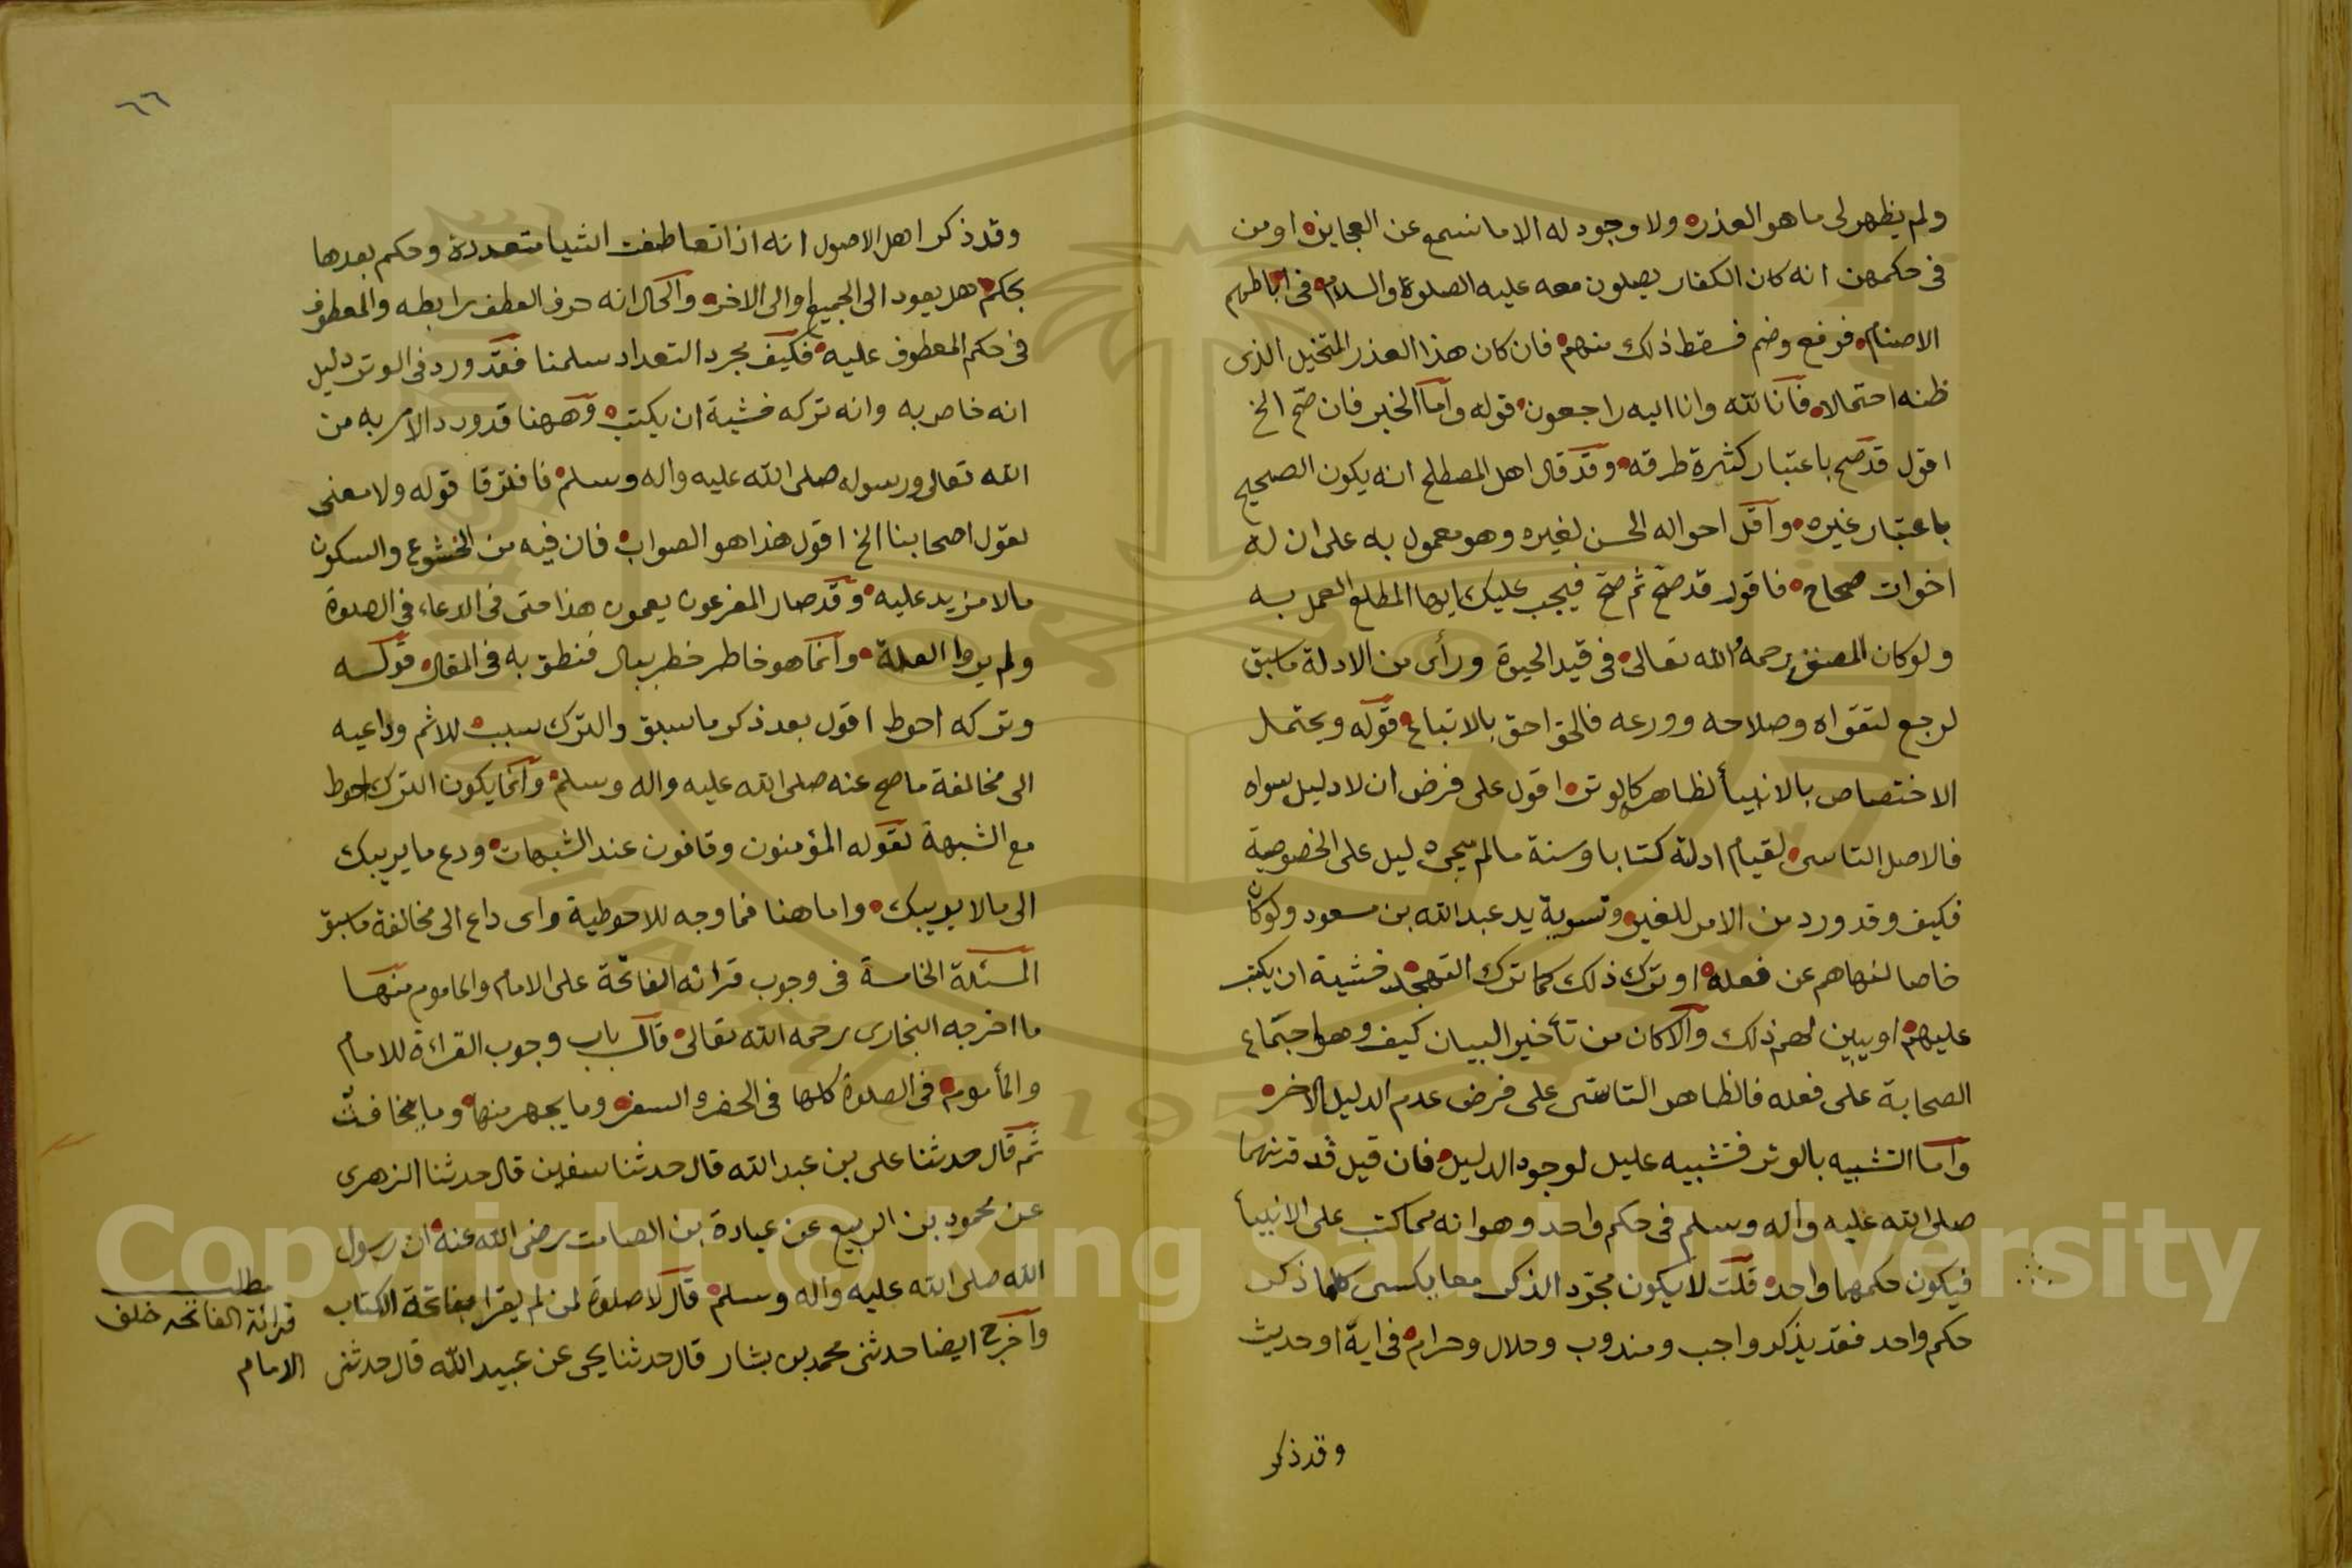 ولم يظهر لى ما هو العذر ولا وجود له الا ما نسمع عن العجايز او من
فى حكمهن انه كان الكفار يصلون معه عليه الصلوة والسلام فى اباطهم
الاصنام فرفع وضم فسقط ذلك منهم فان كان هذا العذر المتخيل الذى
ظنه احتمالا فانا لله وانا اليه راجعون قوله واما الخبر فان صح الخ
اقول قد صح باعتبار كثرة طرقه وقد قال اهل المصطلح انه يكون الصحيح
باعتبار غيره واقل احواله الحسن لغيره وهو معمول به على ان له
اخوات صحاح فاقول قد صح ثم صح فيجب عليك ايها المطلع العمل به
ولو كان المصنف رحمه الله تعالى فى قيد الحيوة ورأى من الادلة ما سبق
لرجع لتقواه وصلاحه وورعه فالحق احق بالاتباع قوله ويحتمل
الاختصاص بالانبيأ لظاهر كالوتر اقول على فرض ان لا دليل سواه
فالاصل التاسى لقيام ادلة كتابا وسنة ما لم يجى دليل على الخصوصية
فكيف وقد ورد من الامر للغير وتسوية يد عبدالله بن مسعود ولو كان
خاصا لنهاهم عن فعله او ترك ذلك كما ترك التهجد خشية ان يكتب
عليهم او يبين لهم ذلك والا كان من تأخير البيان كيف وهو اجتماع
الصحابة على فعله فالظاهر التاسى على فرض عدم الدليل الاخر
واما التشبيه بالوتر فتشبيه عليل لوجود الدليل فان قيل قد قرنهما
صلى الله عليه واله وسلم فى حكم واحد وهو انه مما كتب على الانبيأ
فيكون حكمهما واحد قلت لا يكون مجرد الذكر معا يكسى كلما ذكر
حكم واحد فقد يذكر واجب ومندوب وحلال وحرام فى اية او حديث
وقد ذكر
٦٦
وقد ذكر اهل الاصول انه اذا تعاطفت اشيا متعددة وحكم بعدها
بحكم هل يعود الى الجميع او الى الاخر والحال انه حرف العطف رابطه والمعطوف
فى حكم المعطوف عليه فكيف مجرد التعداد سلمنا فقد ورد فى الوتر دليل
انه خاص به وانه تركه خشية ان يكتب وههنا قد ورد الامر به من
الله تعالى ورسوله صلى الله عليه واله وسلم فافترقا قوله ولا معنى
لقول اصحابنا الخ اقول هذا هو الصواب فان فيه من الخشوع والسكون
مالا مزيد عليه وقد صار المفرعون يعمون هذا حتى فى الدعاء فى الصلوة
ولم يروا العلة وانما هو خاطر خطر ببال فنطق به فى المقال قوله
وتركه احوط اقول بعد ذكر ما سبق والترك سبب للاثم وداعيه
الى مخالفة ما صح عنه صلى الله عليه واله وسلم وانما يكون الترك احوط
مع الشبهة لقوله المؤمنون وقافون عند الشبهات ودع ما يريبك
الى مالا يريبك واما هنا فما وجه للاحوطية واى داع الى مخالفة ما سبق
المسئلة الخامسة فى وجوب قرائه الفاتحة على الامام والماموم منها
ما اخرجه البخارى رحمه الله تعالى قال باب وجوب القراءة للامام
والمأموم فى الصلوة كلها فى الحضر والسفر وما يجهر منها وما يخافت
ثم قال حدثنا على بن عبدالله قال حدثنا سفين قال حدثنا الزهرى
عن محمود بن الربيع عن عبادة بن الصامت رضى الله عنه ان رسول
الله صلى الله عليه واله وسلم قال لا صلوة لمن لم يقرا بفاتحة الكتاب
واخرج ايضا حدثنى محمد بن بشار قال حدثنا يحيى عن عبيد الله قال حدثنى
مطلب
قرائة الفاتحه خلف
الامام
Copyright © King Saud University
1957